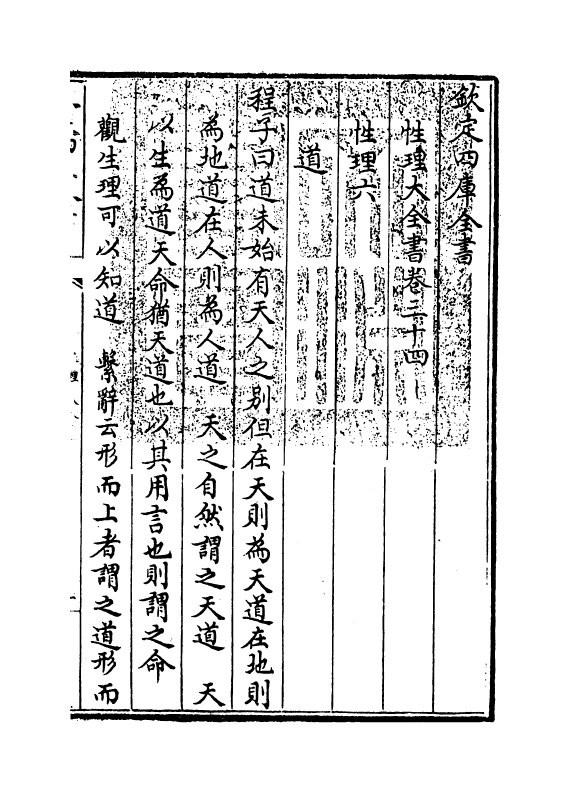 欽定四庫全書
性理大全書卷三十四
性理六
道
程子曰道未始有天人之別但在天則為天道在地則
為地道在人則為人道　天之自然謂之天道　天
以生為道天命猶天道也以其用言也則謂之命
觀生理可以知道　繫辭云形而上者謂之道形而